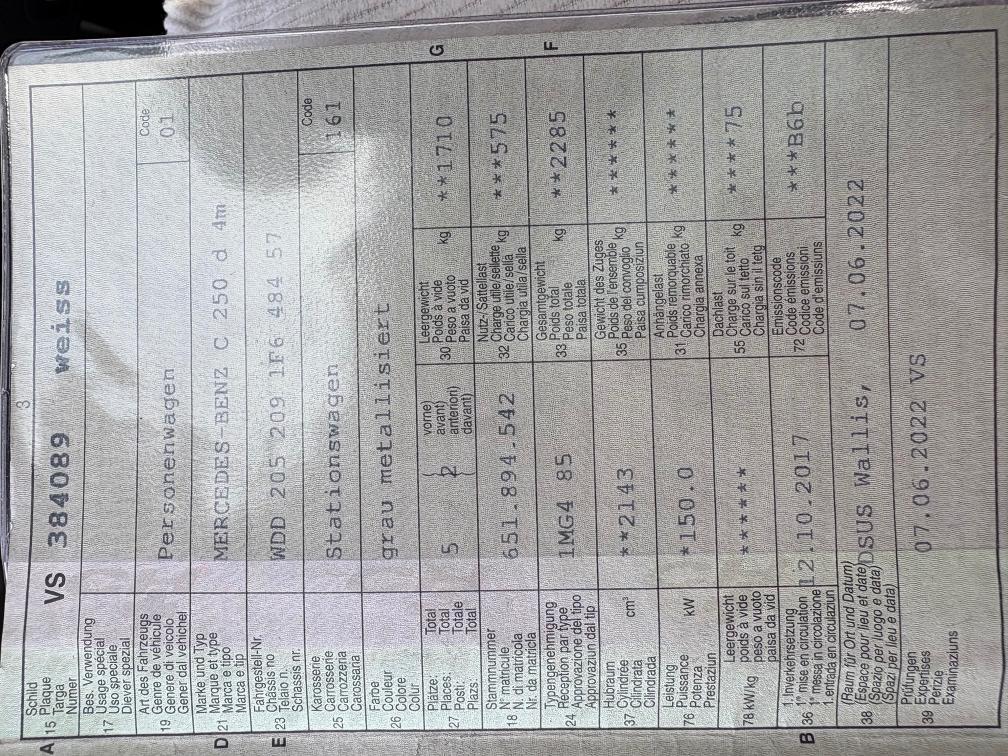 3
A 15 Schild
Plaque
Targa
Numer
VS 384089 weiss
17 Bes. Verwendung
Usage spécial
Uso speciale
Diever spezial
19 Art des Fahrzeugs
Genre de véhicule
Genere di veicolo
Gener dal vehichel
Personenwagen
Code
01
D 21 Marke und Typ
Marque et type
Marca e tipo
Marca e tip
MERCEDES-BENZ C 250 d 4m
E 23 Fahrgestell-Nr.
Châssis no
Telaio n.
Schassis nr.
WDD 205 209 1F6 484 57
25 Karosserie
Carrosserie
Carrozzeria
Carossaria
Stationswagen
Code
161
26 Farbe
Couleur
Colore
Colur
grau metallisiert
27 Plätze: Total
Places: Total
Posti: Totale
Plazs: Total
5 ( 2
vorne)
avant)
anteriori)
davant)
30 Leergewicht
Poids à vide
Peso a vuoto
Paisa da vid
kg
**1710
G
18 Stammnummer
N° matricule
N. di matricola
Nr. da matricla
651.894.542
32 Nutz-/Sattellast
Charge utile/sellette
Carico utile/sella
Chargia utila/sella
kg
***575
24 Typengenehmigung
Réception par type
Approvazione del tipo
Approvaziun dal tip
1MG4 85
33 Gesamtgewicht
Poids total
Peso totale
Paisa totala
kg
**2285
F
37 Hubraum
Cylindrée
Cilindrata
Cilindrada
cm³
**2143
35 Gewicht des Zuges
Poids de l'ensemble
Peso del convoglio
Paisa cumposiziun
kg
******
76 Leistung
Puissance
Potenza
Prestaziun
kW
*150.0
31 Anhängelast
Poids remorquable
Carico rimorchiato
Chargia annexa
kg
******
78 kW/kg Leergewicht
poids à vide
peso a vuoto
paisa da vid
******
55 Dachlast
Charge sur le toit
Carico sul tetto
Chargia sin il tetg
kg
****75
B 36 1. Inverkehrsetzung
1re mise en circulation
1a messa in circolazione
1. entrada en circulaziun
12.10.2017
72 Emissionscode
Code émissions
Codice emissioni
Code d'emissiuns
***B6b
38 (Raum für Ort und Datum)
(Espace pour lieu et date)
(Spazio per luogo e data)
(Spazi per lieu e data)
DSUS Wallis, 07.06.2022
39 Prüfungen
Expertises
Perizie
Examinaziuns
07.06.2022 VS